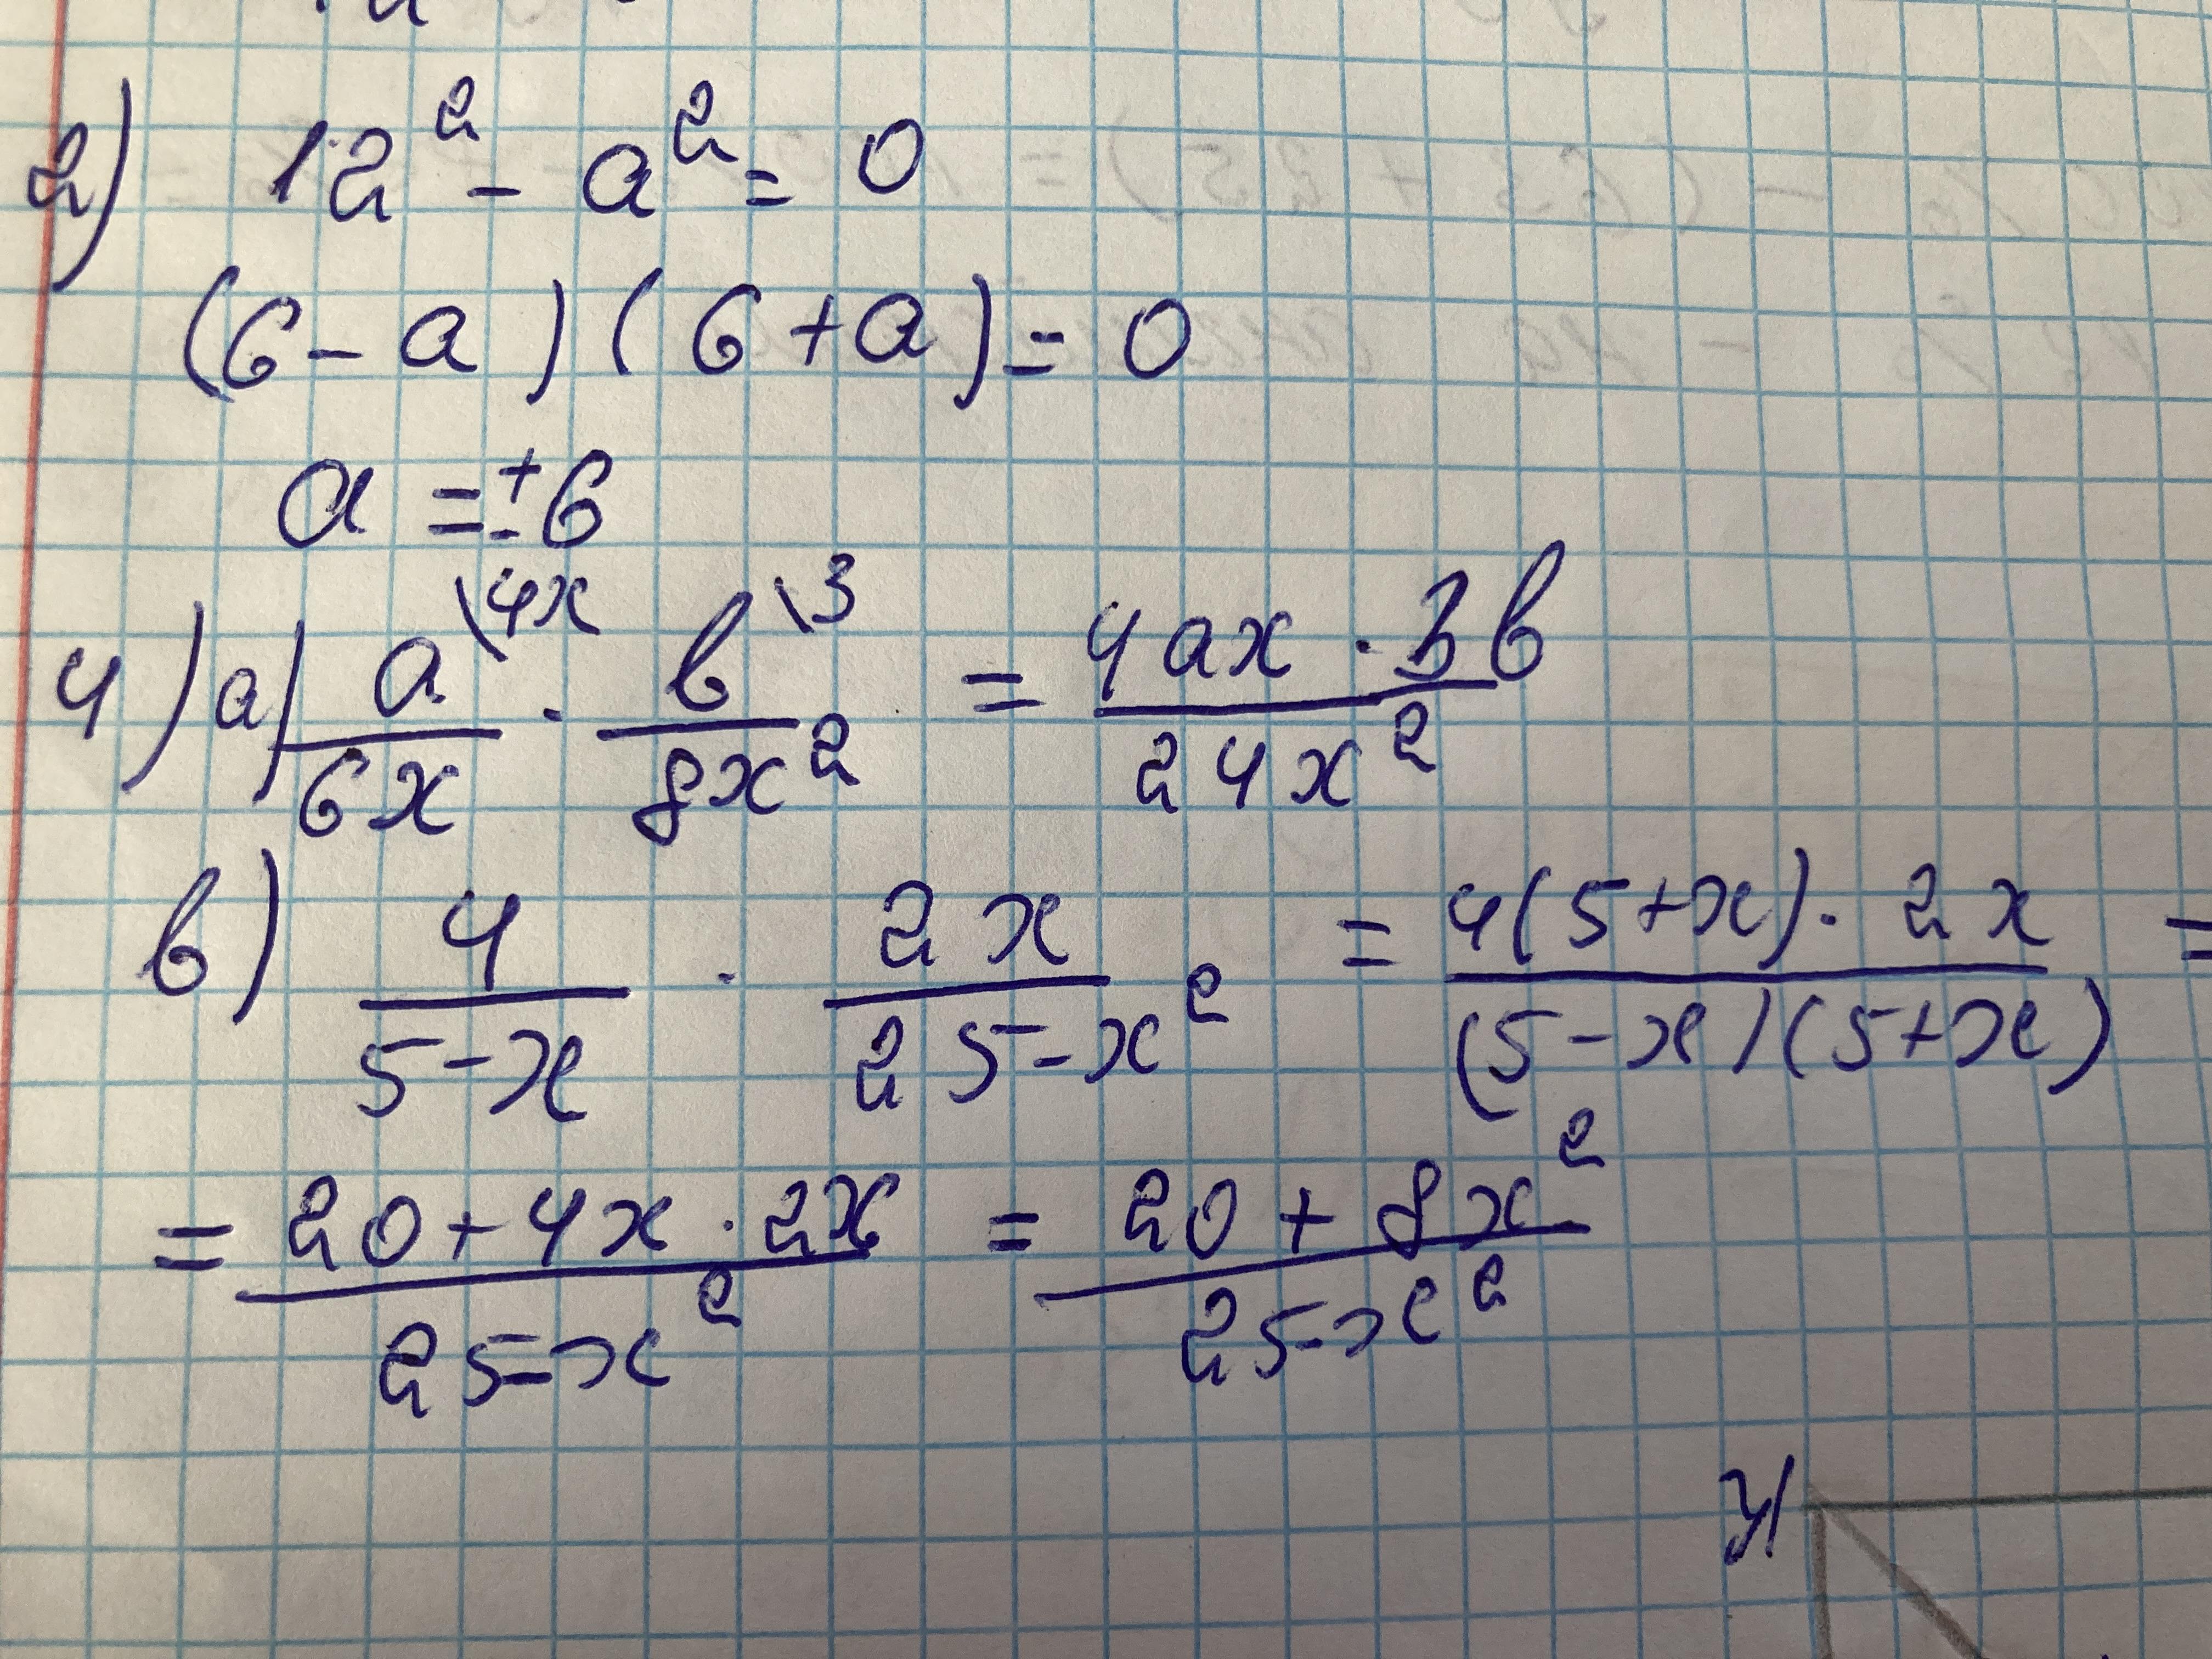 2) 12² - a² = 0
(6 - a)(6 + a) = 0
a = ± 6
4) a) a\4x / 6x · b\3 / 8x² = 4ax · 3b / 24x²
b) 4 / 5-x · 2x / 25-x² = 4(5+x) · 2x / (5-x)(5+x) =
= 20+4x · 2x / 25-x² = 20 + 8x² / 25-x²